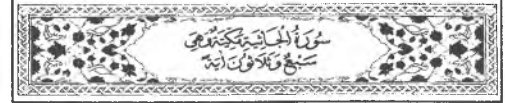 سُورَةُ الْجَاثِيَةِ مَكِّيَّةٌ وَهِيَ
سَبْعٌ وَثَلَاثُونَ آيَةً